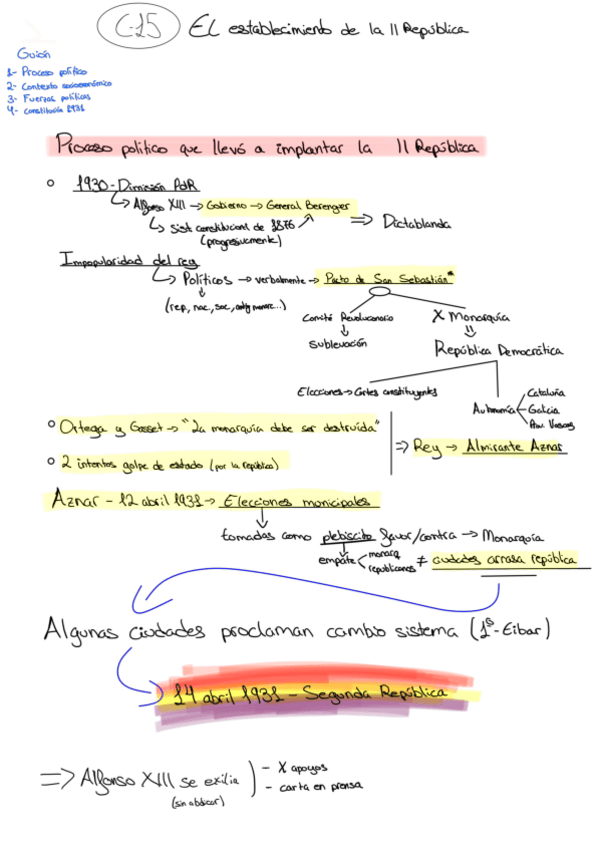 C-15 EL establecimiento de la II República
Guión
1- Proceso político
2- Contexto socioeconómico
3- Fuerzas políticas
4- Constitución 1931
Proceso político que llevó a implantar la II República
1930-Dimisión PdR
Alfonso XIII → Gobierno → General Berenguer
Sist constitucional de 1876 ⇒ Dictablanda
(progresivamente)
Impopularidad del rey
Políticos → verbalmente → Pacto de San Sebastián*
(rep, nac, soc, monarc...)
Comité Revolucionario X Monarquía
Sublevación República Democrática
Elecciones → Cortes constituyentes
Autonomía Cataluña
Galicia
Vascas
Ortega y Gasset → "La monarquía debe ser destruida"
⇒ Rey → Almirante Aznar
2 intentos golpe de estado (por la república)
Aznar - 12 abril 1931 → Elecciones municipales
tomadas como plebiscito favor/contra → Monarquía
empate monarq
republicanos ≠ ciudades arrasa república
Algunas ciudades proclaman cambio sistema (1º-Eibar)
14 abril 1931 - Segunda República
⇒ Alfonso XIII se exilia - X apoyos
(sin abdicar) - carta en prensa